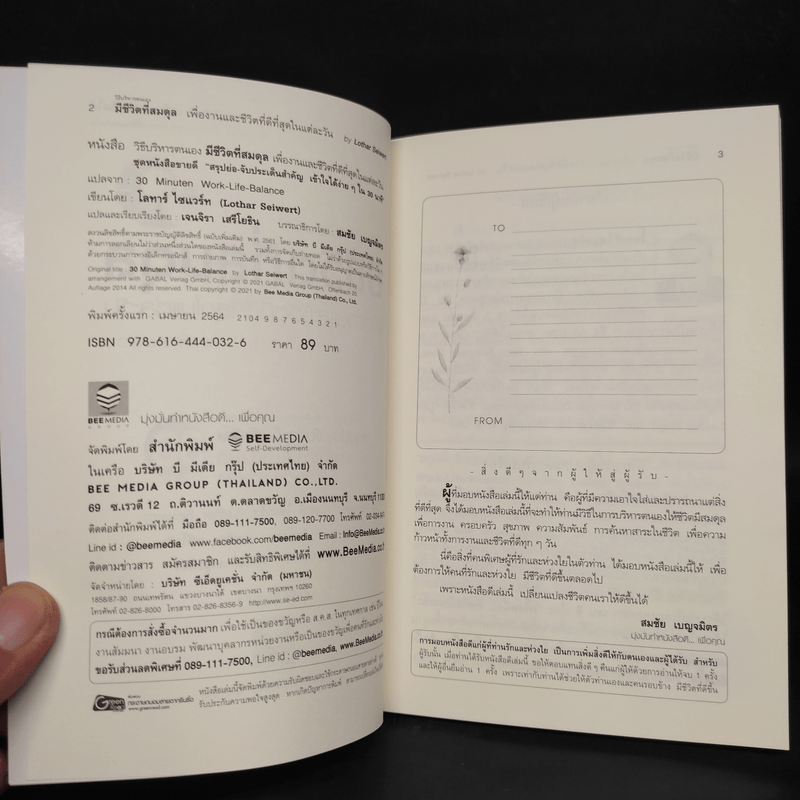 วิธีบริหารตนเอง
2 มีชีวิตที่สมดุล เพื่องานและชีวิตที่ดีที่สุดในแต่ละวัน by Lothar Seiwert
หนังสือ วิธีบริหารตนเอง มีชีวิตที่สมดุล เพื่องานและชีวิตที่ดีที่สุดในแต่ละวัน
ชุดหนังสือขายดี "สรุปย่อ-จับประเด็นสำคัญ เข้าใจได้ง่าย ๆ ใน 30 นาที"
แปลจาก : 30 Minuten Work-Life-Balance
เขียนโดย : โลทาร์ ไซแวร์ท (Lothar Seiwert)
แปลและเรียบเรียงโดย : เจนจิรา เสรีโยธิน บรรณาธิการโดย : สมชัย เบญจมิตร
สงวนลิขสิทธิ์ตามพระราชบัญญัติลิขสิทธิ์ (ฉบับเพิ่มเติม) พ.ศ. 2561 โดย บริษัท บี มีเดีย กรุ๊ป (ประเทศไทย) จำกัด
ห้ามการลอกเลียนไม่ว่าส่วนหนึ่งส่วนใดของหนังสือเล่มนี้ รวมทั้งการจัดเก็บถ่ายทอด ไม่ว่าด้วยรูปแบบหรือวิธีการใด ๆ
ด้วยกระบวนการทางอิเล็กทรอนิกส์ การถ่ายภาพ การบันทึก หรือวิธีการอื่นใด โดยไม่ได้รับอนุญาต
Original title 30 Minuten Work-Life-Balance by Lothar Seiwert This translation published by
arrangement with GABAL Verlag GmbH, Copyright © 2021 GABAL Verlag GmbH, Offenbach 25
Auflage 2014 All rights reserved. Thai copyright © 2021 by Bee Media Group (Thailand) Co., Ltd.
พิมพ์ครั้งแรก : เมษายน 2564 2 1 0 4 9 8 7 6 5 4 3 2 1
ISBN 978-616-444-032-6 ราคา 89 บาท
BEE MEDIA
GROUP
มุ่งมั่นทำหนังสือดี... เพื่อคุณ
จัดพิมพ์โดย สำนักพิมพ์ BEE MEDIA
Self-Development
ในเครือ บริษัท บี มีเดีย กรุ๊ป (ประเทศไทย) จำกัด
BEE MEDIA GROUP (THAILAND) CO.,LTD.
69 ซ.เรวดี 12 ถ.ติวานนท์ ต.ตลาดขวัญ อ.เมืองนนทบุรี จ.นนทบุรี 11000
ติดต่อสำนักพิมพ์ได้ที่ มือถือ 089-111-7500, 089-120-7700 โทรศัพท์
Line id : @beemedia www.facebook.com/beemedia Email : Info@BeeMedia.co
ติดตามข่าวสาร สมัครสมาชิก และรับสิทธิพิเศษได้ที่ www.BeeMedia.co
จัดจำหน่ายโดย : บริษัท ซีเอ็ดยูเคชั่น จำกัด (มหาชน)
1858/87-90 ถนนเทพรัตน แขวงบางนาใต้ เขตบางนา กรุงเทพฯ 10260
โทรศัพท์ 02-826-8000 โทรสาร 02-826-8356-9 http://www.se-ed.com
กรณีต้องการสั่งซื้อจำนวนมาก เพื่อใช้เป็นของขวัญหรือ ส.ค.ส. ในทุกเทศกาล เช่น ปีใหม่
งานสัมมนา งานอบรม พัฒนาบุคลากรหน่วยงานหรือเป็นของขวัญเพื่อคนที่รักและห่วงใย
ขอรับส่วนลดพิเศษที่ 089-111-7500, Line id : @beemedia, www.BeeMedia.co
Green
Read
กระดาษถนอมสายตากรีนรี้ด
www.greenread.com
หนังสือเล่มนี้จัดพิมพ์ด้วยความรับผิดชอบและใช้กระดาษถนอมสายตา
รับประกันความพอใจสูงสุด หากเกิดปัญหาการพิมพ์
3
TO
FROM
- สิ่งดีๆจากผู้ให้สู่ผู้รับ -
ผู้ที่มอบหนังสือเล่มนี้ให้แด่ท่าน คือผู้ที่มีความเอาใจใส่และปรารถนาแต่สิ่ง
ที่ดีที่สุด จึงได้มอบหนังสือเล่มนี้ที่จะทำให้ท่านมีวิธีในการบริหารตนเองให้ชีวิตมีสมดุล
เพื่อการงาน ครอบครัว สุขภาพ ความสัมพันธ์ การค้นหาสาระในชีวิต เพื่อความ
ก้าวหน้าทั้งการงานและชีวิตที่ดีทุก ๆ วัน
นี่คือสิ่งที่คนพิเศษผู้ที่รักและห่วงใยในตัวท่าน ได้มอบหนังสือเล่มนี้ให้ เพื่อ
ต้องการให้คนที่รักและห่วงใย มีชีวิตที่ดีขึ้นตลอดไป
เพราะหนังสือดีเล่มนี้ เปลี่ยนแปลงชีวิตคนเราให้ดีขึ้นได้
สมชัย เบญจมิตร
มุ่งมั่นทำหนังสือดี...เพื่อคุณ
การมอบหนังสือดีแก่ผู้ที่ท่านรักและห่วงใย เป็นการเพิ่มสิ่งดีให้กับตนเองและผู้ได้รับ สำหรับ
ผู้รับนั้น เมื่อท่านได้รับหนังสือดีเล่มนี้ ขอให้ตอบแทนสิ่งดี ๆ คืนแก่ผู้ให้ด้วยการอ่านให้จบ 1 ครั้ง
และให้ผู้อื่นยืมอ่าน 1 ครั้ง เพราะเท่ากับท่านได้ช่วยให้ตัวท่านเองและคนรอบข้าง มีชีวิตที่ดีขึ้น